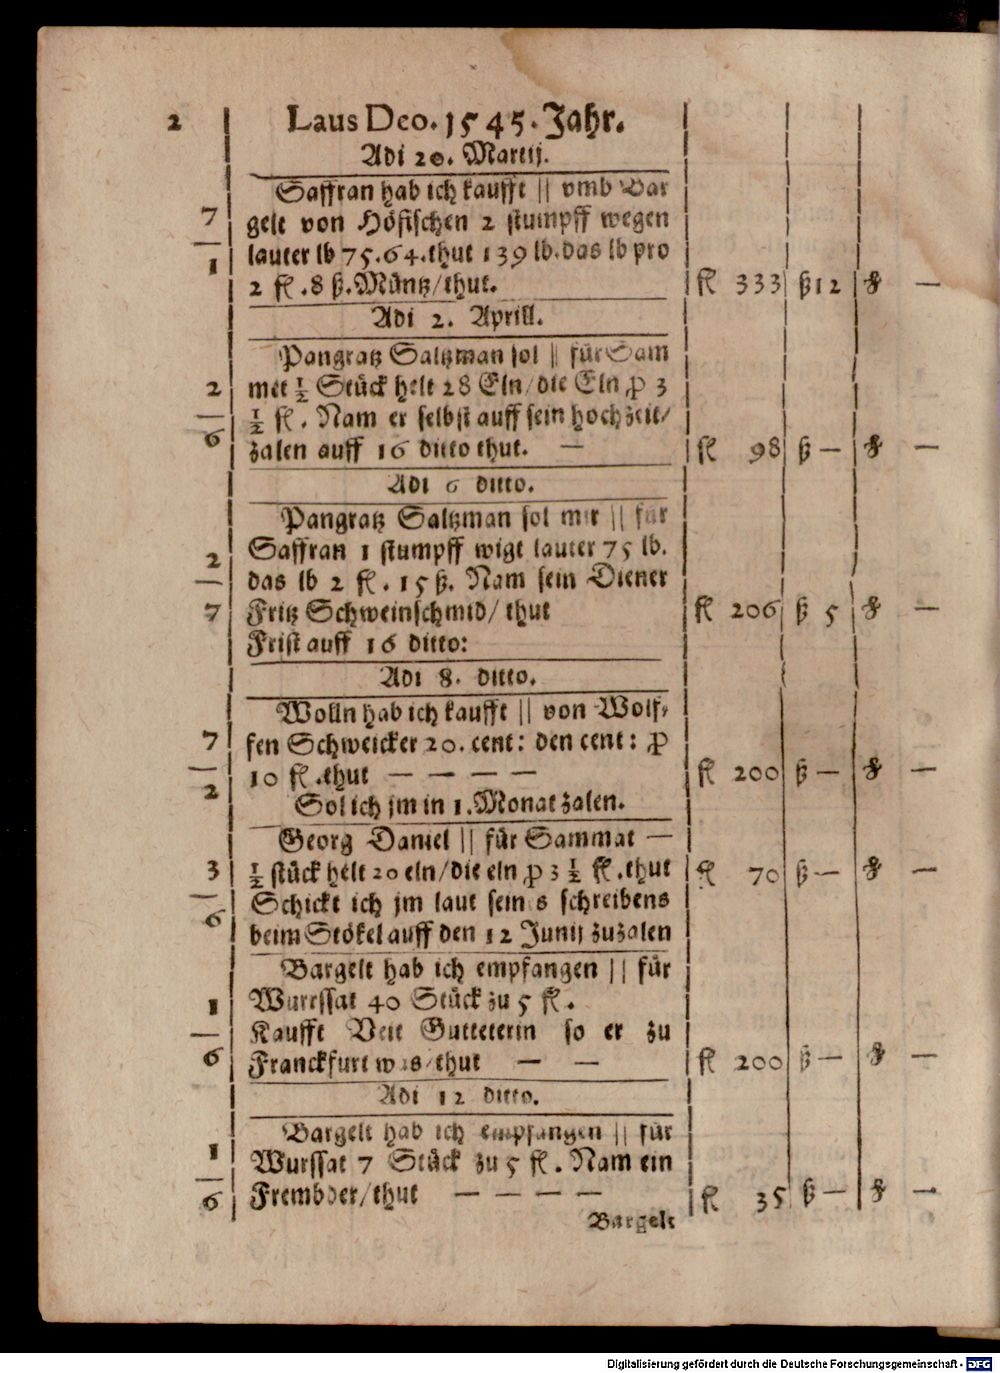 2 Laus Deo. 1545. Jahr.
Adi 20. Martij.
Saffran hab ich kaufft || vmb Bar
7 gelt von Höfischen 2 stumpff wegen
1 lauter lb 75.64.thut 139 lb.das lb pro
2 fl .8 ß.Müntz/thut. fl 333 ß12 ₰ —
Adi 2. Aprill.
Pangratz Saltzman sol || für Sam
2 met ½ Stück helt 28 Eln/die Eln ꝑ 3
½ fl . Nam er selbst auff sein hochzeit/
6 zalen auff 16 ditto thut. — fl 98 ß — ₰ —
Adi 6 ditto.
Pangratz Saltzman sol mir || für
2 Saffran 1 stumpff wigt lauter 75 lb.
das lb 2 fl . 15 ß. Nam sein Diener
7 Fritz Schweinschmid/ thut fl 206 ß 5 ₰ —
Frist auff 16 ditto:
Adi 8. ditto.
Wolln hab ich kaufft || von Wolf⸗
7 fen Schweicker 20. cent: den cent: ꝑ
2 10 fl .thut — — — — fl 200 ß — ₰ —
Sol ich jm in 1.Monat zalen.
Georg Daniel || für Sammat —
3 ½ stück helt 20 eln/die eln ꝑ 3 ½ fl .thut fl 70 ß — ₰ —
6 Schickt ich jm laut seins schreibens
beim Stökel auff den 12 Junij zuzalen
Bargelt hab ich empfangen || für
1 Wurssat 40 Stück zu 5 fl .
Kaufft Veit Gutteterin so er zu
6 Franckfurt was/thut — — fl 200 ß — ₰ —
Adi 12 ditto.
Bargelt hab ich empfangen || für
1 Wurssat 7 Stück zu 5 fl . Nam ein
6 Frembder/thut — — — — fl 35 ß — ₰ —
Bargelt
Digitalisierung gefördert durch die Deutsche Forschungsgemeinschaft - DFG